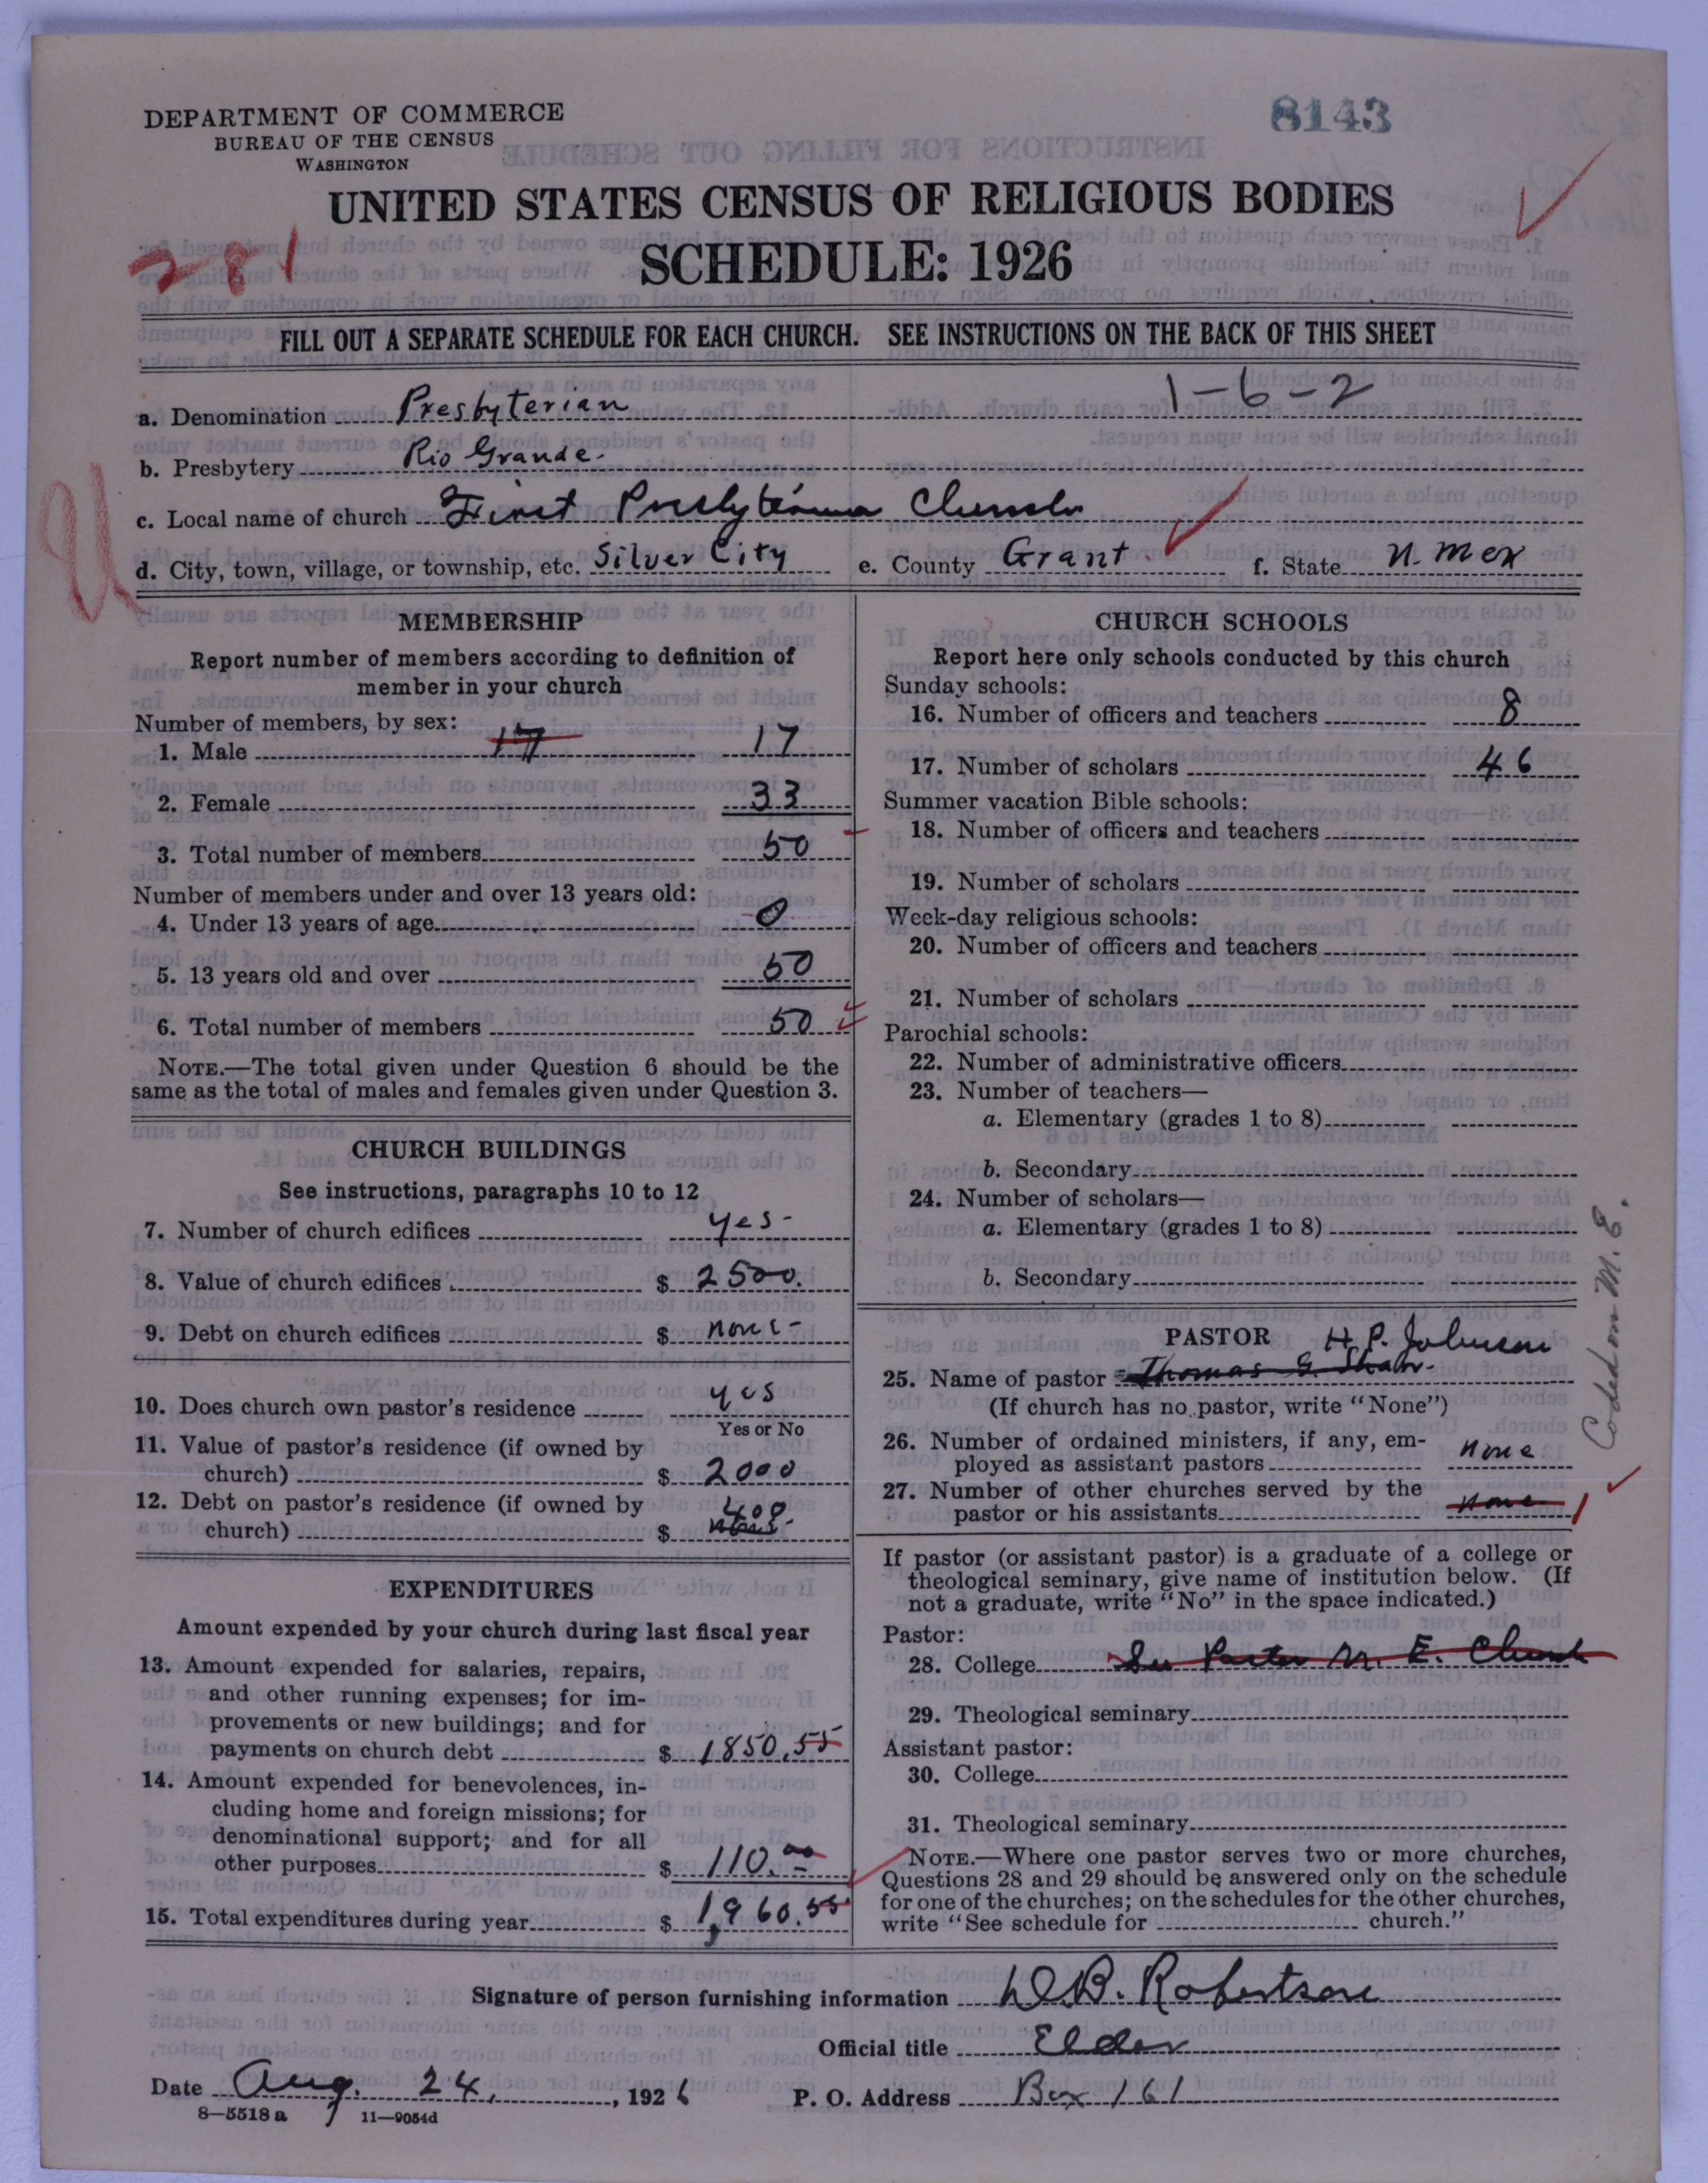 DEPARTMENT OF COMMERCE
BUREAU OF THE CENSUS
WASHINGTON
8143
UNITED STATES CENSUS OF RELIGIOUS BODIES
SCHEDULE: 1926
281
FILL OUT A SEPARATE SCHEDULE FOR EACH CHURCH. SEE INSTRUCTIONS ON THE BACK OF THIS SHEET
a. Denomination Presbyterian 1-6-2
b. Presbytery Rio Grande.
c. Local name of church First Presbyterian Church
d. City, town, village, or township, etc. Silver City e. County Grant. f. State N. Mex
U
MEMBERSHIP
Report number of members according to definition of
member in your church
Number of members, by sex:
1. Male 17 17
2. Female 33
3. Total number of members 50
Number of members under and over 13 years old:
4. Under 13 years of age 0
5. 13 years old and over 50
6. Total number of members 50
NOTE.—The total given under Question 6 should be the
same as the total of males and females given under Question 3.
CHURCH BUILDINGS
See instructions, paragraphs 10 to 12
7. Number of church edifices yes-
8. Value of church edifices $ 2500.
9. Debt on church edifices $ none-
10. Does church own pastor's residence yes
Yes or No
11. Value of pastor's residence (if owned by
church) $ 2000
12. Debt on pastor's residence (if owned by
church) $ 400
EXPENDITURES
Amount expended by your church during last fiscal year
13. Amount expended for salaries, repairs,
and other running expenses; for im-
provements or new buildings; and for
payments on church debt $ 1850.55
14. Amount expended for benevolences, in-
cluding home and foreign missions; for
denominational support; and for all
other purposes $ 110.00
15. Total expenditures during year $ 1,960.55
CHURCH SCHOOLS
Report here only schools conducted by this church
Sunday schools:
16. Number of officers and teachers 8
17. Number of scholars 46
Summer vacation Bible schools:
18. Number of officers and teachers
19. Number of scholars
Week-day religious schools:
20. Number of officers and teachers
21. Number of scholars
Parochial schools:
22. Number of administrative officers
23. Number of teachers—
a. Elementary (grades 1 to 8)
b. Secondary
24. Number of scholars—
a. Elementary (grades 1 to 8)
b. Secondary
PASTOR H. P. Johnson
25. Name of pastor Thomas
(If church has no pastor, write "None")
26. Number of ordained ministers, if any, em-
ployed as assistant pastors none
27. Number of other churches served by the
pastor or his assistants none 1
Coded on M. E.
If pastor (or assistant pastor) is a graduate of a college or
theological seminary, give name of institution below. (If
not a graduate, write "No" in the space indicated.)
Pastor:
28. College See Pastor M. E. Church
29. Theological seminary
Assistant pastor:
30. College
31. Theological seminary
NOTE.—Where one pastor serves two or more churches,
Questions 28 and 29 should be answered only on the schedule
for one of the churches; on the schedules for the other churches,
write "See schedule for church."
Signature of person furnishing information W.B. Robertson
Official title Elder
Date Aug. 24, 1926 P. O. Address Box 161
8—5518a 11—9054d